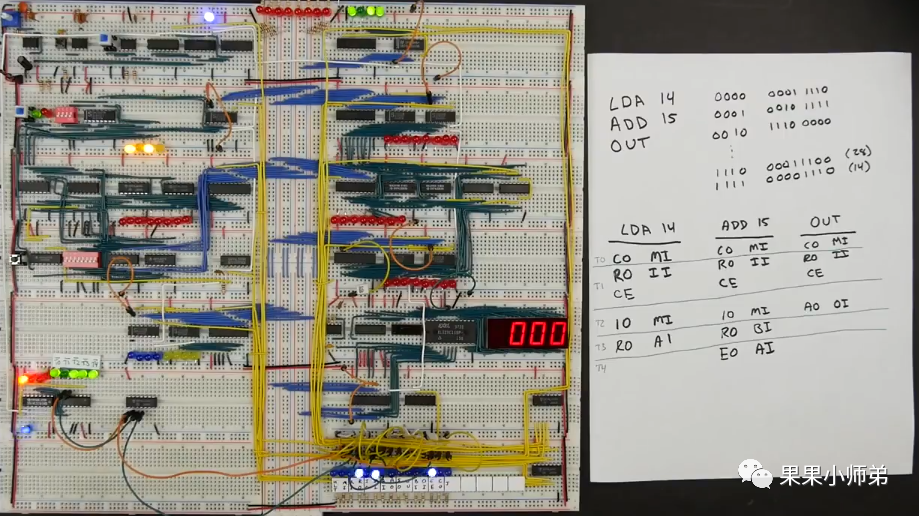 LDA 14 0000 0001 1110
ADD 15 0001 0010 1111
OUT 0010 1110 0000
⋮
1110 00011100 (28)
1111 00001110 (14)
LDA 14 ADD 15 OUT
T0 CO MI CO MI CO MI
T1 RO II RO II RO II
CE CE CE
T2 IO MI IO MI AO OI
T3 RO AI RO BI
T4 EO AI
000
果果小师弟